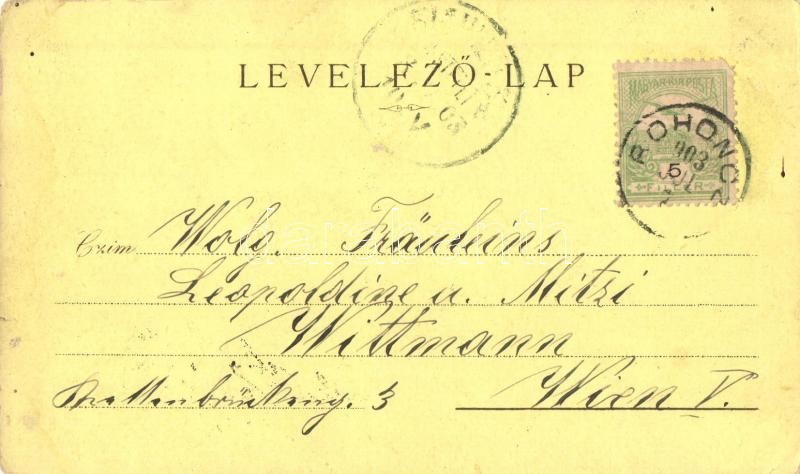 LEVELEZŐ-LAP
MAGYAR KIR. POSTA
5
FILLÉR
ROHONCZ
903
Czim Wolg. Fräuleins
Leopoldine u. Mitzi
Wittmann
Wien V.